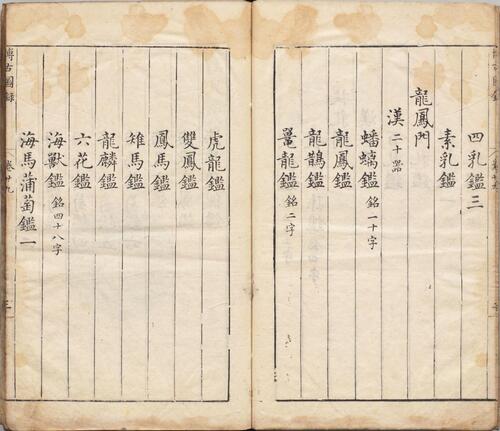 四乳鑑三
素乳鑑
龍鳳門
漢二十器
蟠螭鑑 銘一十字
龍鳳鑑
龍鵲鑑
鼍龍鑑 銘二字
虎龍鑑
雙鳳鑑
鳳馬鑑
雉馬鑑
龍麟鑑
六花鑑
海獸鑑 銘四十八字
海馬蒲萄鑑一
博古圖錄 卷廿九